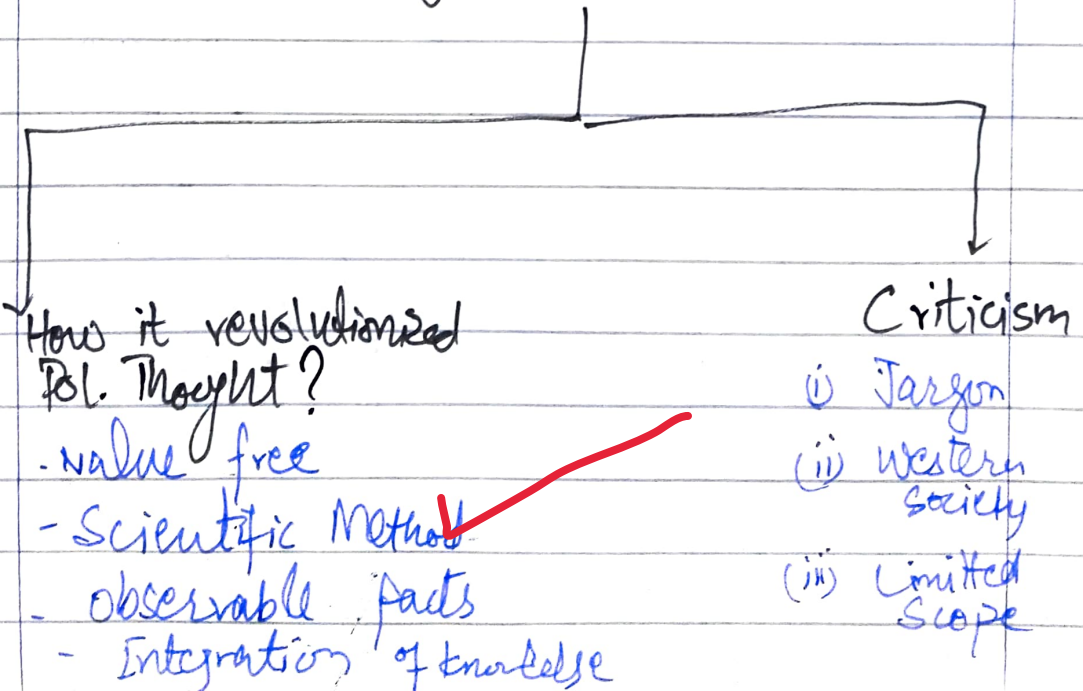 How it revolutionized
Pol. Thoght?
- value free
- Scientific Method
- observable facts
- Integration of knowledge
Criticism
(i) Jargon
(ii) Western
Society
(iii) Limited
Scope